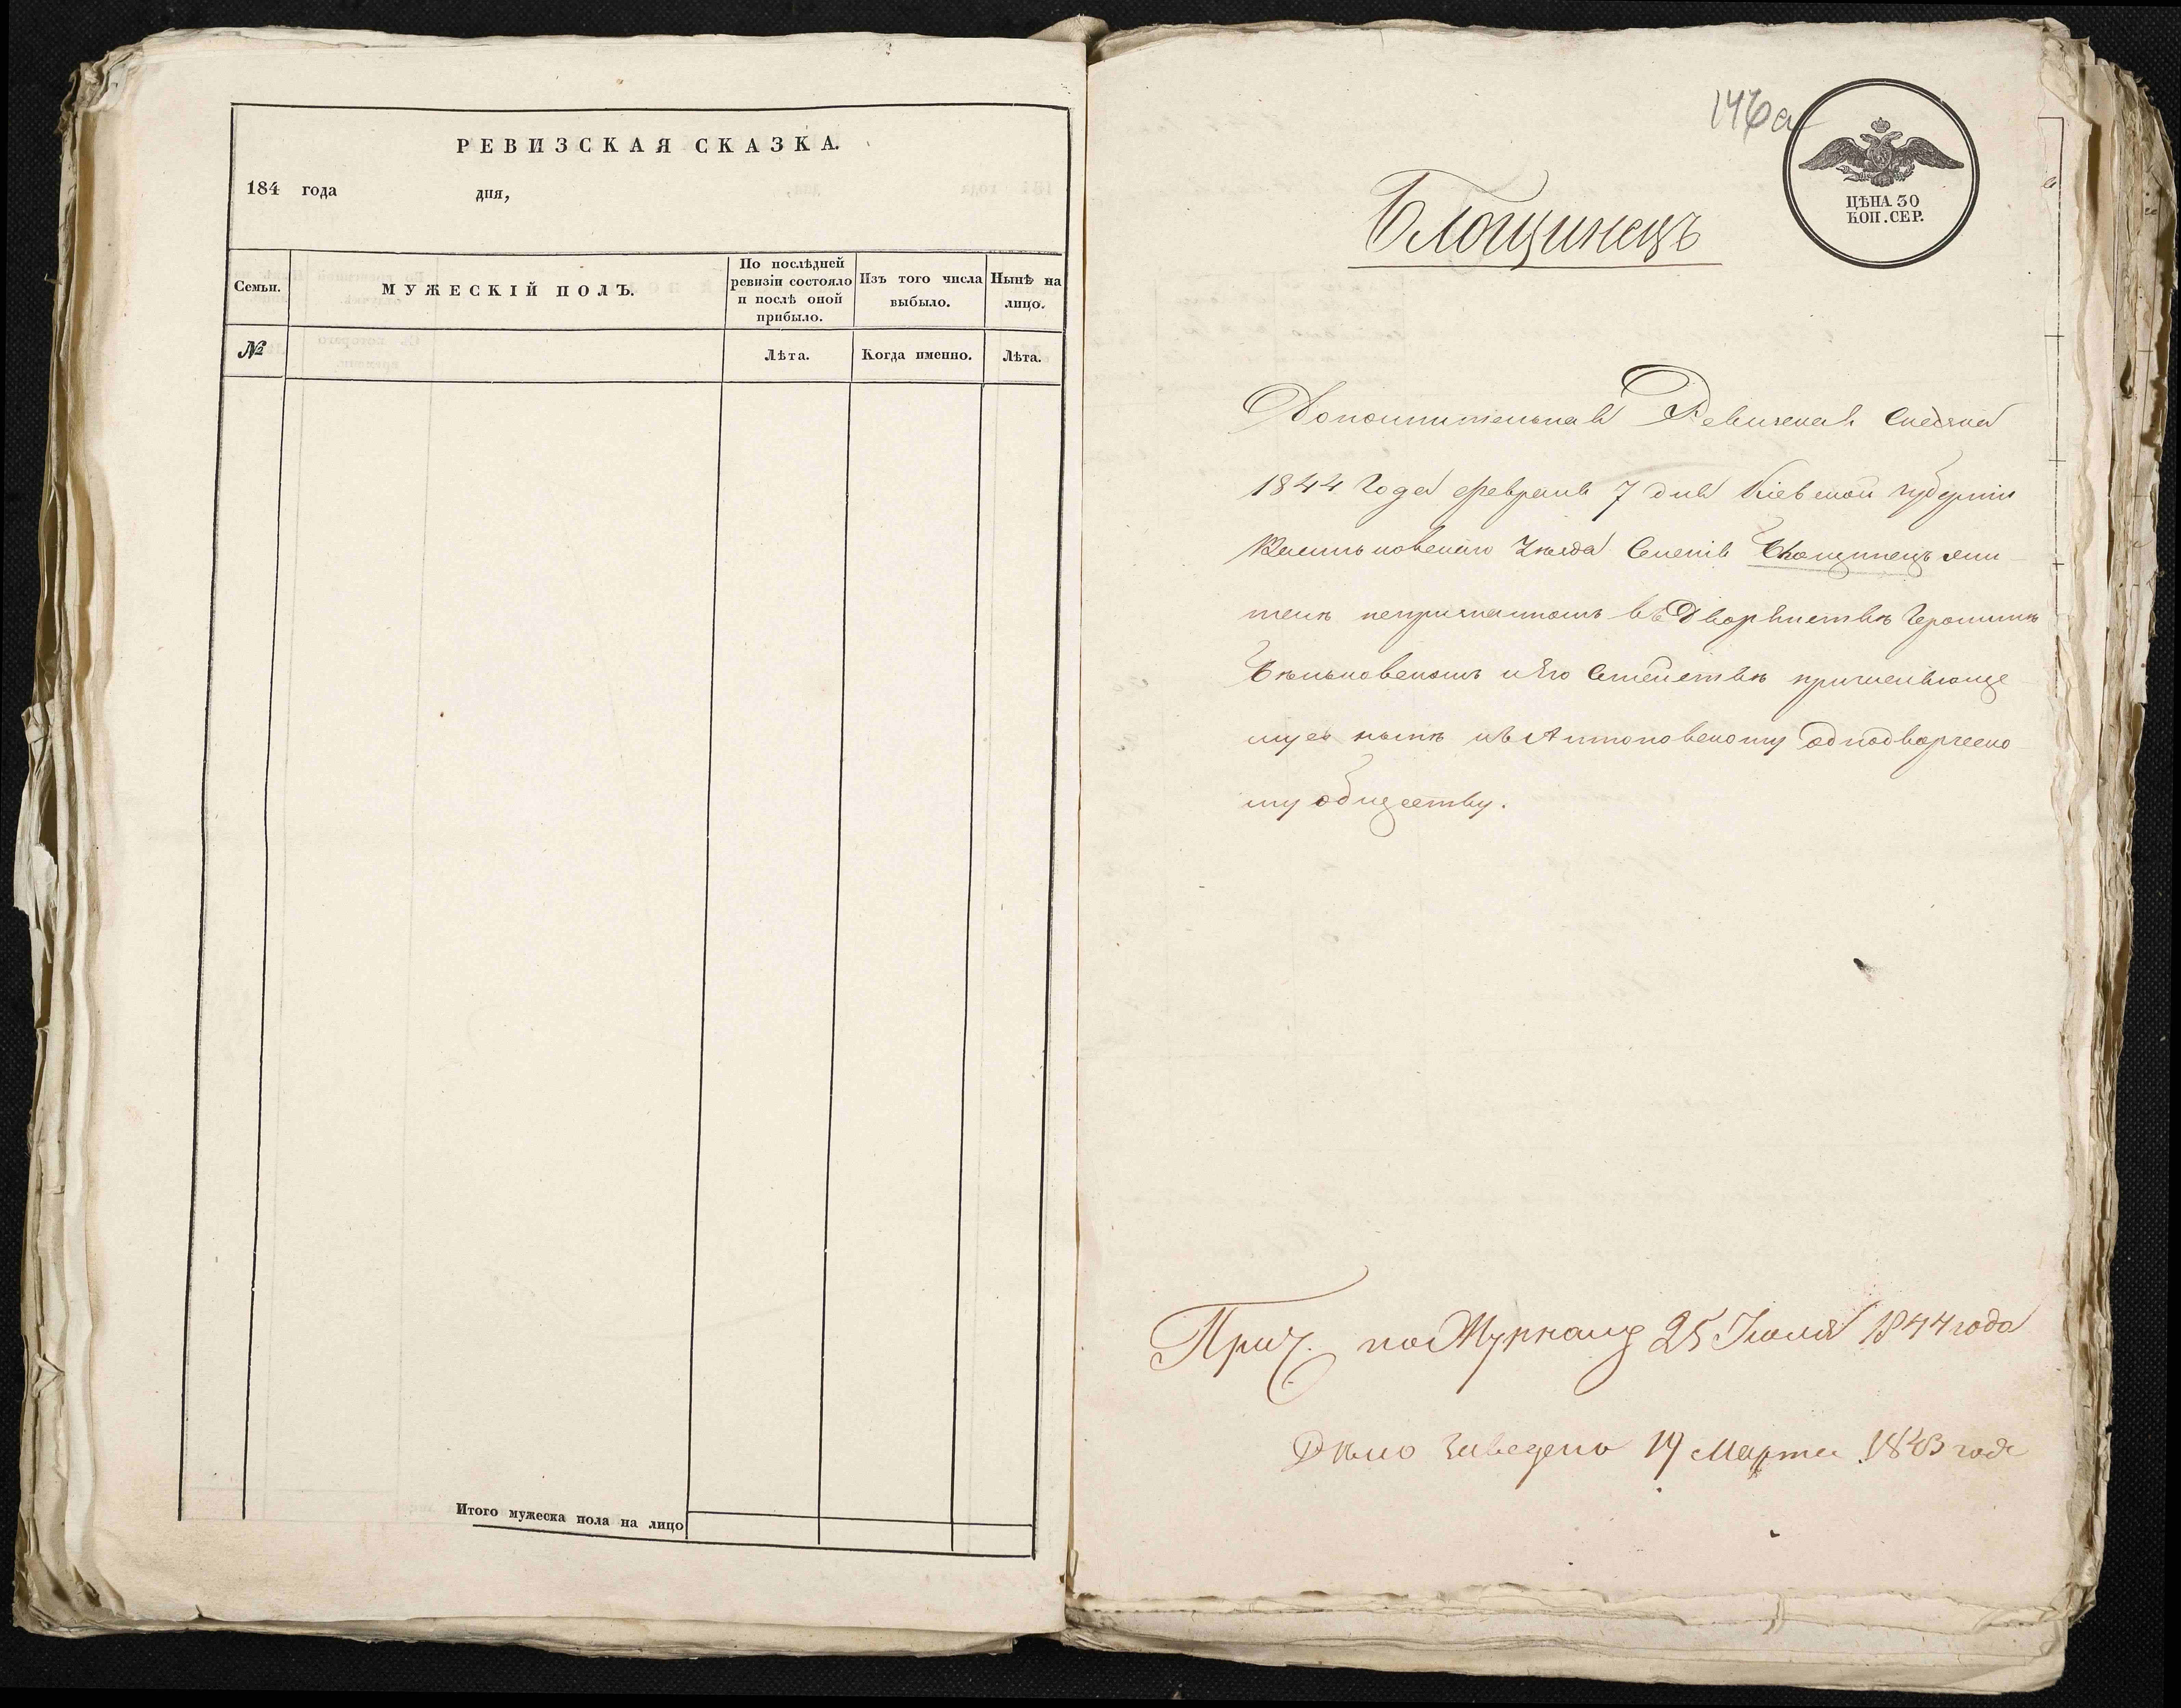 РЕВИЗСКАЯ СКАЗКА.
184 года дня,
Семьи.
МУЖЕСКІЙ ПОЛЪ.
По послѣдней ревизіи состояло и послѣ оной прибыло.
Изъ того числа выбыло.
Нынѣ на лицо.
№
Лѣта.
Когда именно.
Лѣта.
Итого мужеска пола на лицо
146а
ЦѢНА 30
КОП. СЕР.
Блощинецъ
Дополнительная Ревизская Сказка
1844 Года февраля 7 дня Кіевской губерніи
Васильковскаго Уѣзда Селенія Блощинецъ жи-
телѣ непризнанномъ въ Дворянствѣ Геронимѣ
Бѣльковскомъ и Его Семействѣ причисляюще
муся нынѣ къ Антоновскому однодворческо
му обществу.
Прич. по Журналу 25 Іюля 1844 года
Дѣло заведено 19 Марта 1843 года